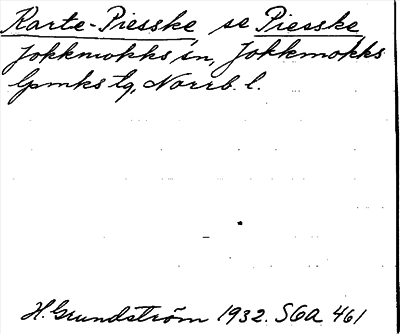 Karte-Piesske, se Piesske
Jokkmokks sn, Jokkmokks
lpmks tg, Norrb. l.
H. Grundström 1932. SOA 461